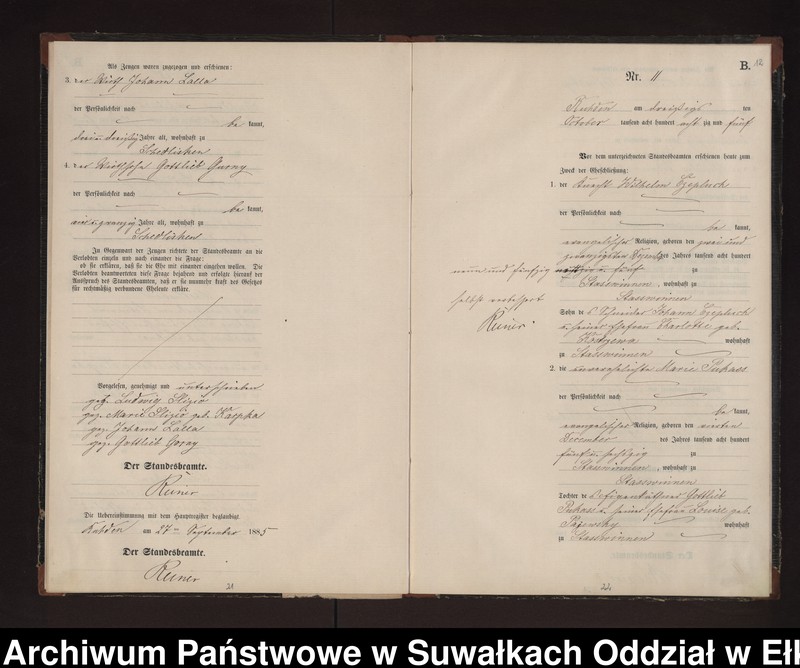 Als Zeugen waren zugezogen und erschienen:
3. der Wirth Johann Lalla
der Persönlichkeit nach
be kannt,
Jahre alt, wohnhaft zu
Schedlisken
4. der Wirthssohn Gottlieb
der Persönlichkeit nach
be kannt,
Jahre alt, wohnhaft zu
Schedlisken
In Gegenwart der Zeugen richtete der Standesbeamte an die
Verlobten einzeln und nach einander die Frage:
ob sie erklären, daß sie die Ehe mit einander eingehen wollen. Die
Verlobten beantworteten diese Frage bejahend und erfolgte hierauf der
Ausspruch des Standesbeamten, daß er sie nunmehr kraft des Gesetzes
für rechtmäßig verbundene Eheleute erkläre.
Vorgelesen, genehmigt und unterschrieben
gez. Ludwig
gez. Marie geb. Kaspka
gez. Johann Lalla
gez. Gottlieb
Der Standesbeamte.
Reiner
Die Uebereinstimmung mit dem Hauptregister beglaubigt.
am 27ten September 1885
Der Standesbeamte.
Reiner
21
B. 12
Nr. 11
am dreizsigsten
October tausend acht hundert acht zig und fünf
Vor dem unterzeichneten Standesbeamten erschienen heute zum
Zweck der Eheschließung:
1. der Knecht Wilhelm Czepluch
der Persönlichkeit nach
be kannt,
evangelischer Religion, geboren den zwei und
zwanzigsten des Jahres tausend acht hundert
neun und fünfzig zu
Stasswinnen, wohnhaft zu
Stasswinnen
selbst verbessert
Reiner.
Sohn des Schneider Johann Czepluch
u. seiner Ehefrau Charlotte geb.
wohnhaft
zu Stasswinnen
2. die unverehelichte Marie Pukass
der Persönlichkeit nach
be kannt,
evangelischer Religion, geboren den vierten
December des Jahres tausend acht hundert
fünf u. sechszig zu
Stasswinnen, wohnhaft zu
Stasswinnen
Tochter des Eigenkäthner Gottlieb
Pukass u. seiner Ehefrau Louise geb.
wohnhaft
zu Stasswinnen
22
Archiwum Państwowe w Suwałkach Oddział w Eł